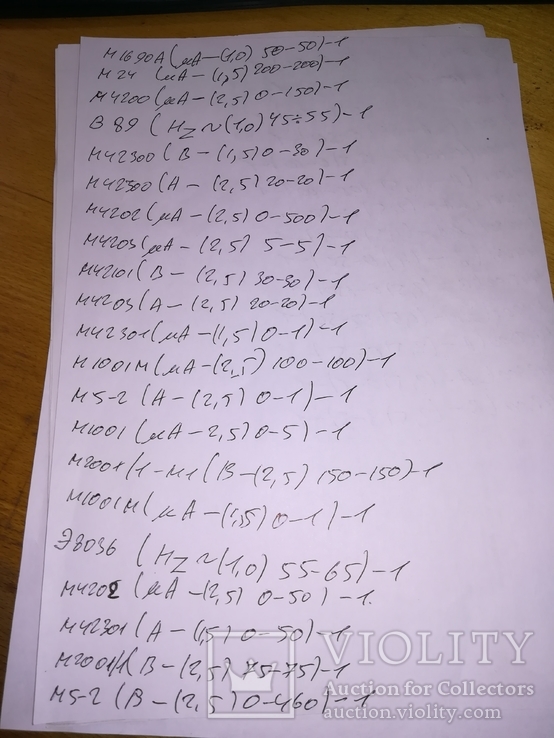 М1690А (мА — (1,0) 50-50)-1
М24 (мА — (1,5) 200-200)-1
М4200 (мА — (2,5) 0-150)-1
В 89 (HZ ~ (1,0) 45÷55)-1
М42300 (В — (1,5) 0-30)-1
М42300 (А — (2,5) 20-20)-1
М4202 (мА — (2,5) 0-500)-1
М4203 (мА — (2,5) 5-5)-1
М42101 (В — (2,5) 30-30)-1
М4203 (А — (2,5) 20-20)-1
М42301 (мА — (1,5) 0-1)-1
М1001М (мА — (2,5) 100-100)-1
М5-2 (А — (2,5) 0-1)-1
М1001 (мА — 2,5) 0-5)-1
(В — (2,5) 150-150)-1
М1001М (мА — (1,5) 0-1)-1
Э8036 (HZ ~ (1,0) 55-65)-1
М4202 (мА — (2,5) 0-50)-1.
М42301 (А — (1,5) 0-50)-1
М2001/1 (В — (2,5) 75-75)-1
М5-2 (В — (2,5) 0-460)-1
VIOLITY
Auction for Collectors
auction.violity.com